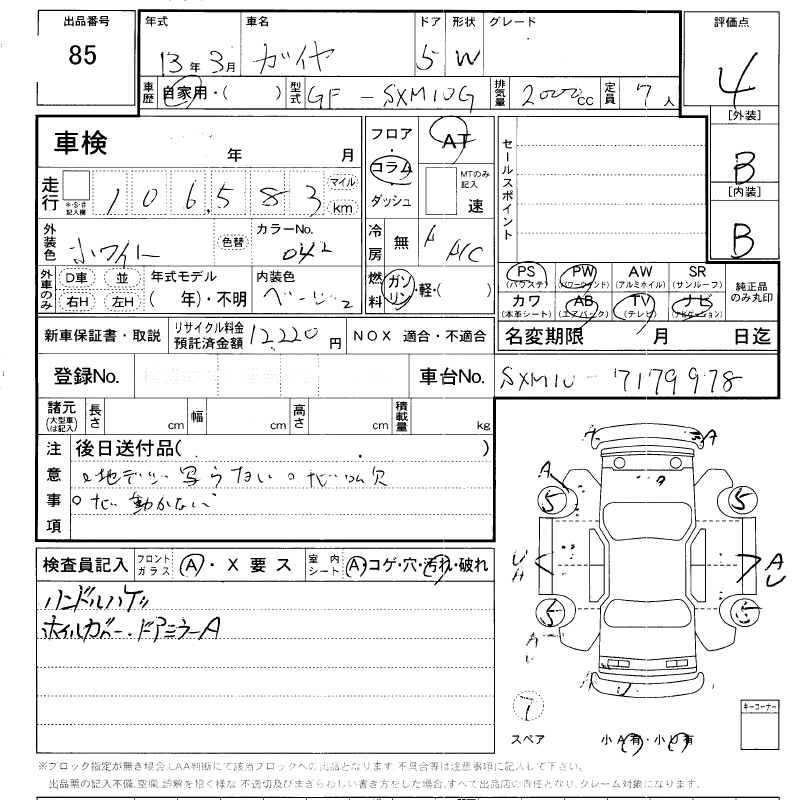 出品番号 年式 車名 ドア 形状 グレード 評価点
85 13年3月 ガイヤ 5 W 4
車歴 自家用・( ) 型式 GF-SXM10G 排気量 2000cc 定員 7人
[外装]
B
[内装]
B
車検 年 月
フロア・コラム・ダッシュ AT
MTのみ記入 速
セールスポイント
走行 *・S・#記入欄 106,583 マイル km
外装色 ホワイト 色替 カラーNo. 042
冷房 無 A/C
外車のみ D車 並 右H 左H
年式モデル ( 年)・不明
内装色 ベージュ
燃料 ガソリン・軽・( )
PS (パワステ) PW (パワーウインド) AW (アルミホイル) SR (サンルーフ)
カワ (本革シート) AB (エアバック) TV (テレビ) ナビ (ナビゲーション)
純正品のみ丸印
新車保証書・取説 リサイクル料金預託済金額 12,220円 NOX 適合・不適合
名変期限 月 日迄
登録No. 車台No. SXM10-7179978
諸元 (大型車は記入) 長さ cm 幅 cm 高さ cm 積載量 kg
注意事項 後日送付品( )
写らない
動かない
検査員記入 フロントガラス A・X要ス 室内シート A・コゲ・穴・汚れ・破れ
ハンドルハゲ
ホイルカバー・ドアミラーA
A A
A
5 5
A
U
5 5
A
U
スペア 小A有・小U有
キーコーナー
※ブロック指定が無き場合、LAA判断にて該当ブロックへの出品となります 不具合等は注意事項に記入して下さい。
出品票の記入不備、空欄、誤解を招く様な 不適切及びまぎらわしい書き方をした場合、すべて出品店の責任となり、クレーム対象になります.